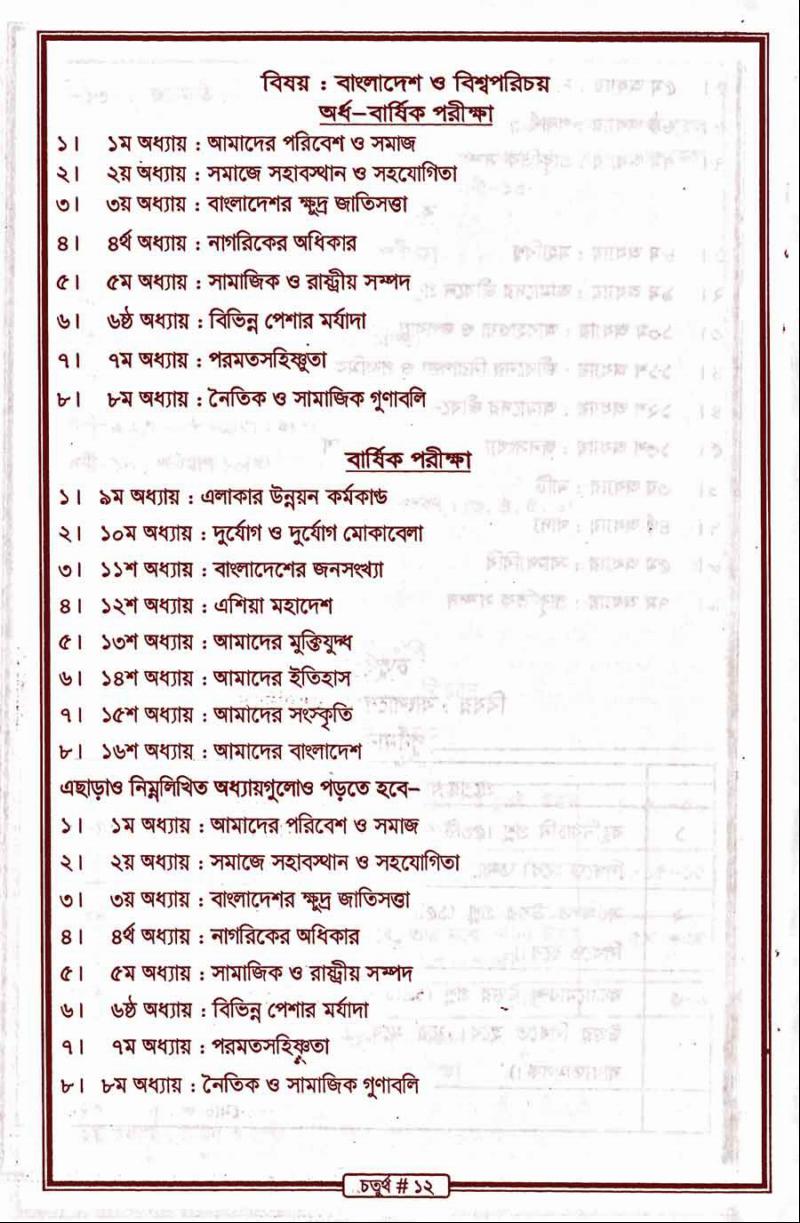 বিষয় : বাংলাদেশ ও বিশ্বপরিচয়
অর্ধ-বার্ষিক পরীক্ষা
১। ১ম অধ্যায় : আমাদের পরিবেশ ও সমাজ
২। ২য় অধ্যায় : সমাজে সহাবস্থান ও সহযোগিতা
৩। ৩য় অধ্যায় : বাংলাদেশর ক্ষুদ্র জাতিসত্তা
৪। ৪র্থ অধ্যায় : নাগরিকের অধিকার
৫। ৫ম অধ্যায় : সামাজিক ও রাষ্ট্রীয় সম্পদ
৬। ৬ষ্ঠ অধ্যায় : বিভিন্ন পেশার মর্যাদা
৭। ৭ম অধ্যায় : পরমতসহিষ্ণুতা
৮। ৮ম অধ্যায় : নৈতিক ও সামাজিক গুণাবলি
বার্ষিক পরীক্ষা
১। ৯ম অধ্যায় : এলাকার উন্নয়ন কর্মকাণ্ড
২। ১০ম অধ্যায় : দুর্যোগ ও দুর্যোগ মোকাবেলা
৩। ১১শ অধ্যায় : বাংলাদেশের জনসংখ্যা
৪। ১২শ অধ্যায় : এশিয়া মহাদেশ
৫। ১৩শ অধ্যায় : আমাদের মুক্তিযুদ্ধ
৬। ১৪শ অধ্যায় : আমাদের ইতিহাস
৭। ১৫শ অধ্যায় : আমাদের সংস্কৃতি
৮। ১৬শ অধ্যায় : আমাদের বাংলাদেশ
এছাড়াও নিম্নলিখিত অধ্যায়গুলোও পড়তে হবে-
১। ১ম অধ্যায় : আমাদের পরিবেশ ও সমাজ
২। ২য় অধ্যায় : সমাজে সহাবস্থান ও সহযোগিতা
৩। ৩য় অধ্যায় : বাংলাদেশর ক্ষুদ্র জাতিসত্তা
৪। ৪র্থ অধ্যায় : নাগরিকের অধিকার
৫। ৫ম অধ্যায় : সামাজিক ও রাষ্ট্রীয় সম্পদ
৬। ৬ষ্ঠ অধ্যায় : বিভিন্ন পেশার মর্যাদা
৭। ৭ম অধ্যায় : পরমতসহিষ্ণুতা
৮। ৮ম অধ্যায় : নৈতিক ও সামাজিক গুণাবলি
চতুর্থ # ১২